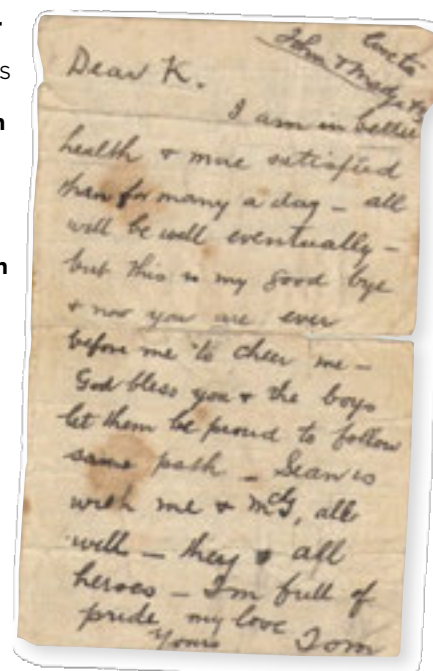 love to
John & Madge &c
Dear K.
I am in better
health & more satisfied
than for many a day – all
will be well eventually –
but this is my good bye
& now you are ever
before me to cheer me –
God bless you & the boys
let them be proud to follow
same path – Sean is
with me & McG, all
well – they all
heroes – I'm full of
pride my love
yours Tom
s
n
n